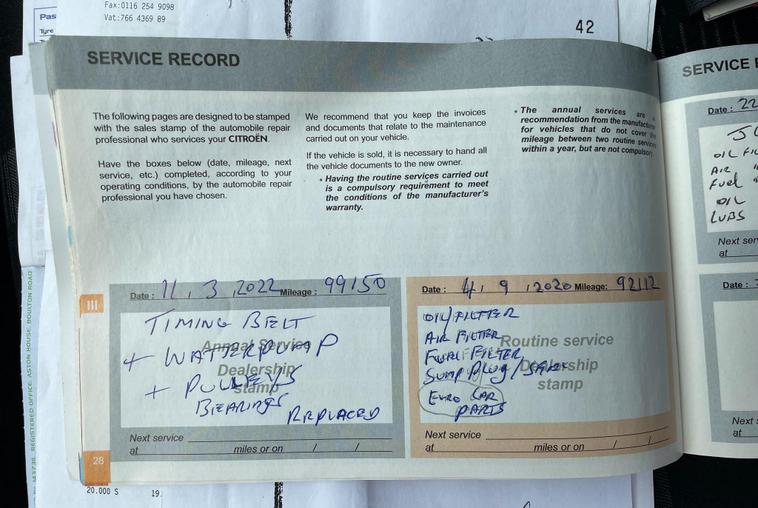 Fax:0116 254 9098
Vat:766 4369 89
Pas
Tyre
42
SERVICE RECORD
The following pages are designed to be stamped
with the sales stamp of the automobile repair
professional who services your CITROËN.
Have the boxes below (date, mileage, next
service, etc.) completed, according to your
operating conditions, by the automobile repair
professional you have chosen.
We recommend that you keep the invoices
and documents that relate to the maintenance
carried out on your vehicle.
If the vehicle is sold, it is necessary to hand all
the vehicle documents to the new owner.
• Having the routine services carried out
is a compulsory requirement to meet
the conditions of the manufacturer's
warranty.
• The annual services are a
recommendation from the manufacturer
for vehicles that do not cover the
mileage between two routine services
within a year, but are not compulsory.
III
Date : 11 . 3 . 2022 Mileage : 99150
Annual Service
Dealership
stamp
TIMING BELT
+ WATTERPUMP
+ PULLEYS
BEARINGS REPLACED
Next service
at miles or on / /
Date : 4 . 9 . 2020 Mileage: 92112
Routine service
Dealership
stamp
OIL/FILTER
AIR FILTER
FUEL FILTER
SUMP PLUG/
EURO CAR
PARTS
Next service
at miles or on / /
28
SERVICE
Date : 22
OIL FIL
AIR
FUEL
OIL
LUBS
Next ser
at
Date :
Next
at
REGISTERED OFFICE: ASTON HOUSE, BOULTON ROAD
20.000 S
19.